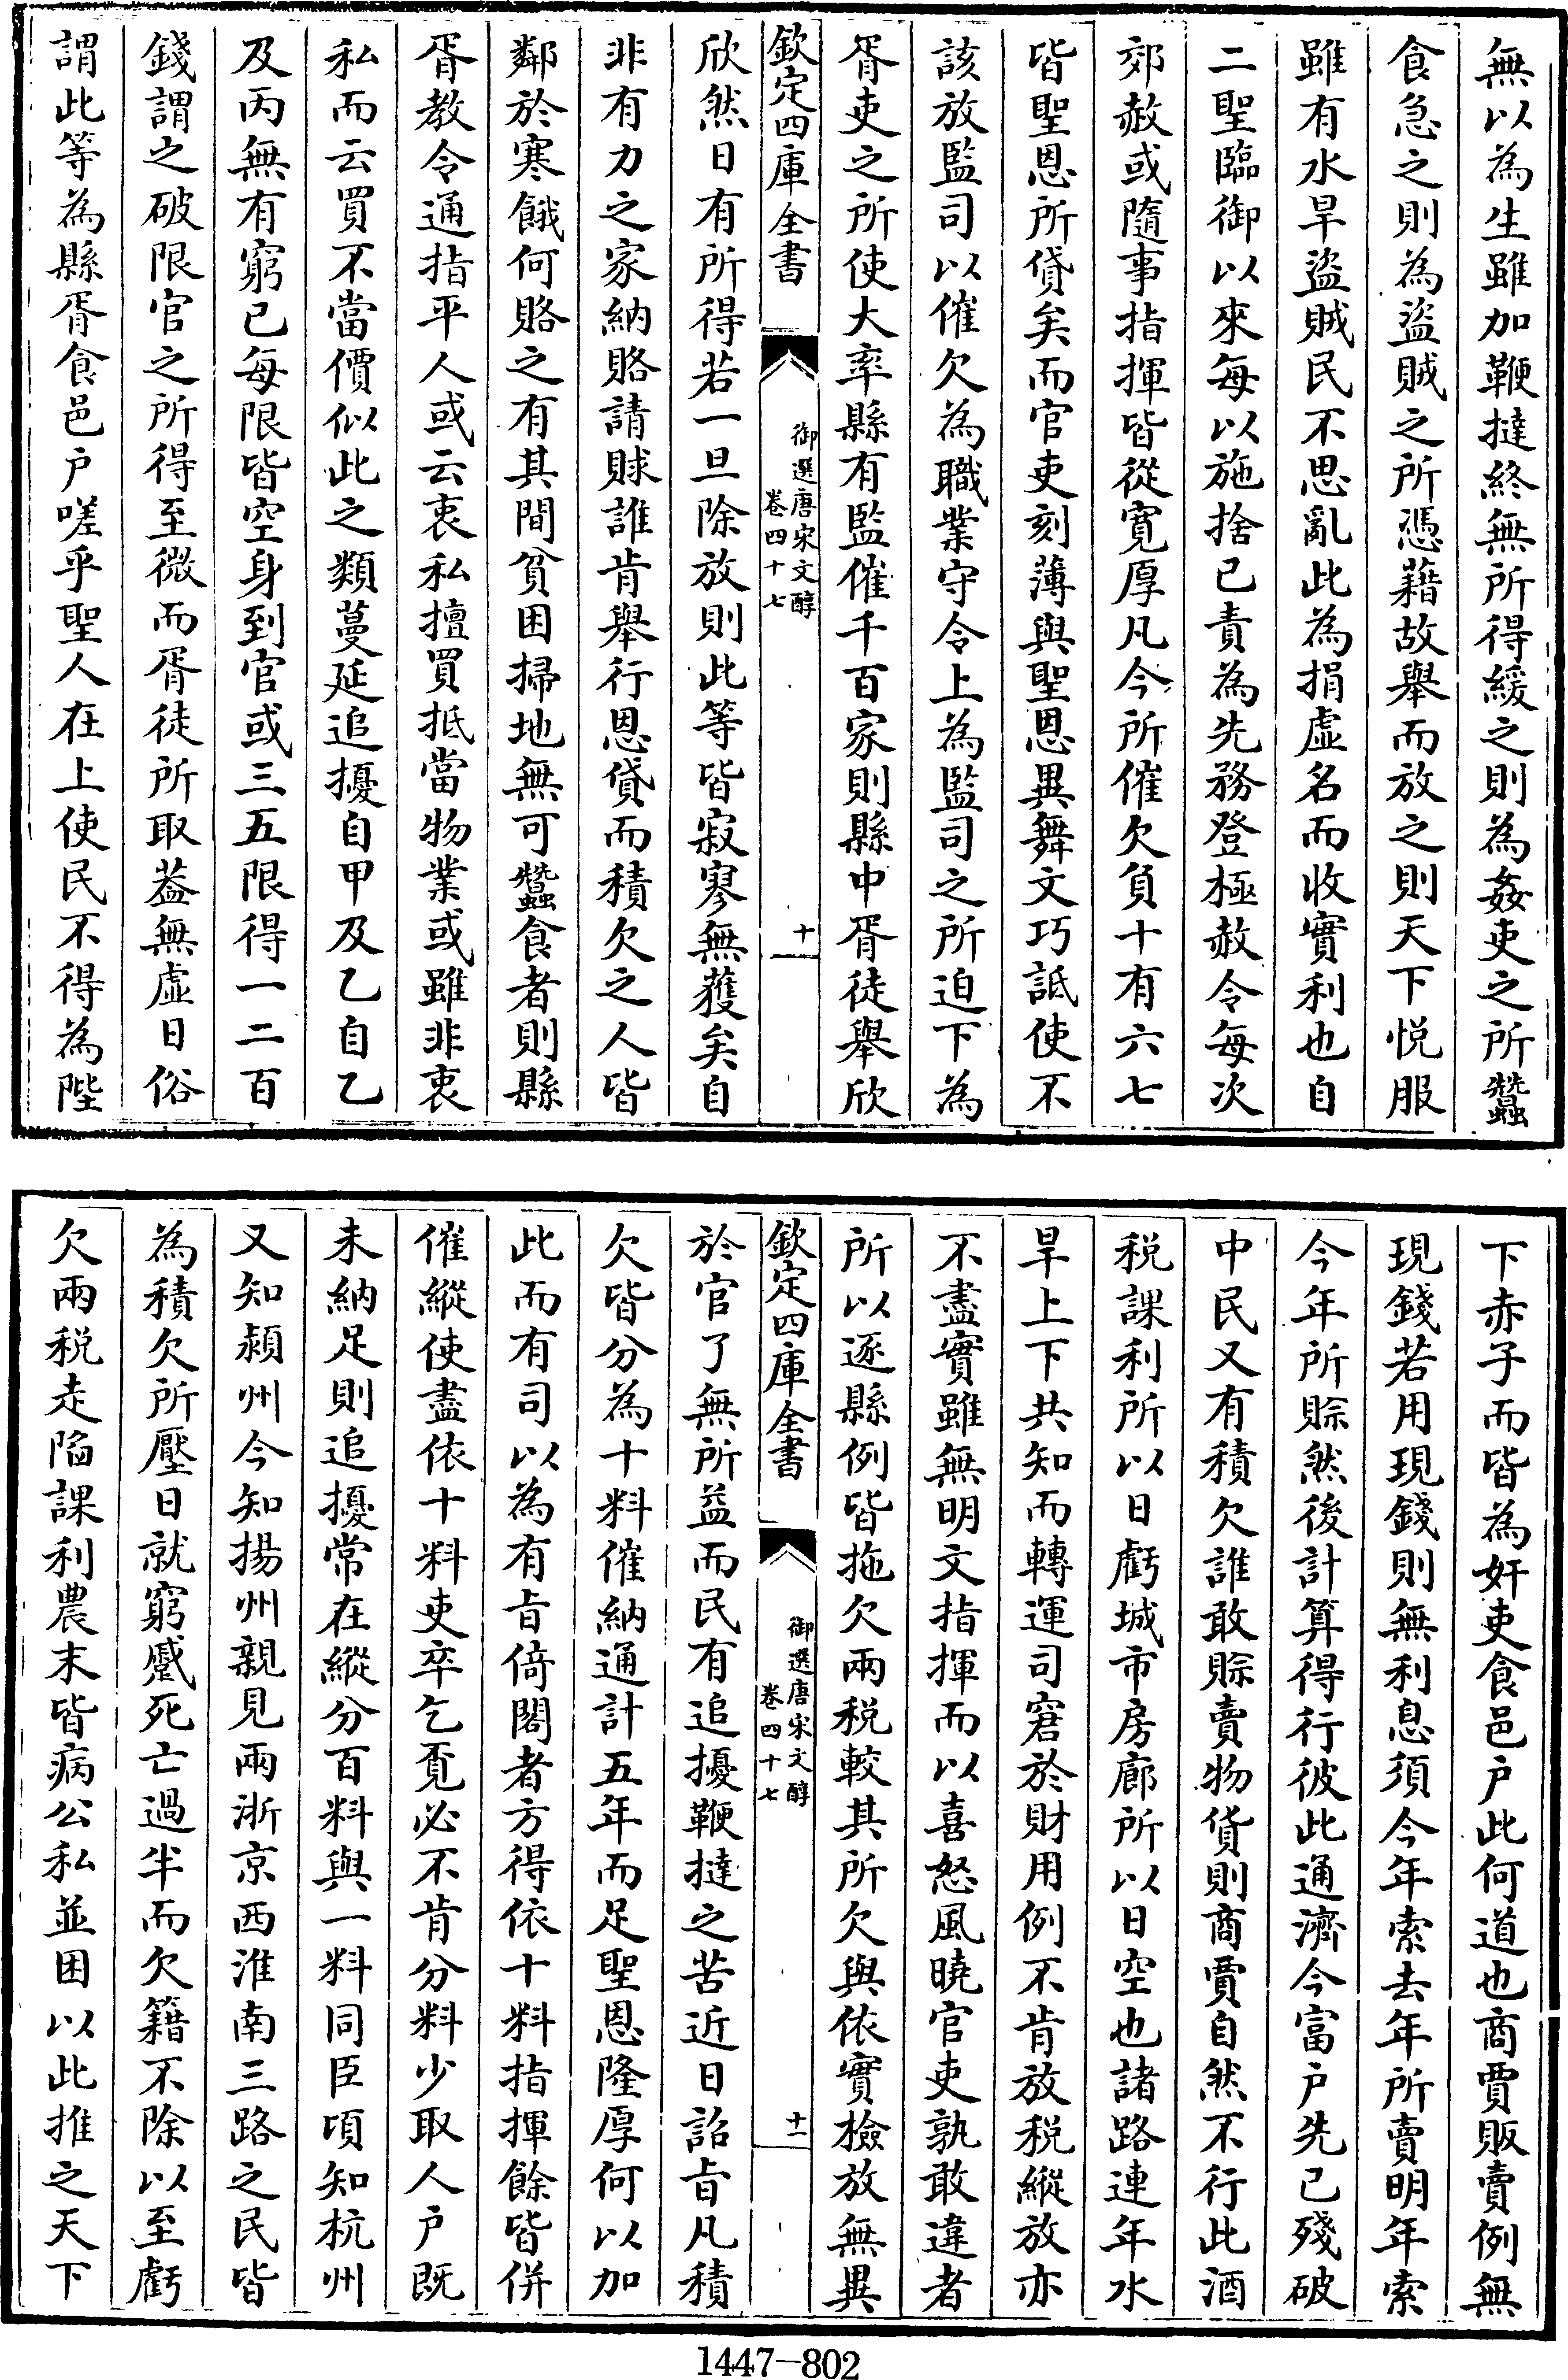 無以為生雖加鞭撻終無所得緩之則為姦吏之所蠶
食急之則為盜賊之所憑藉故舉而放之則天下悅服
雖有水旱盜賊民不思亂此為捐虛名而收實利也自
二聖臨御以來每以施捨已責為先務登極赦令每次
郊赦或隨事指揮皆從寬厚凡今所催欠負十有六七
皆聖恩所貸矣而官吏刻薄與聖恩異舞文巧詆使不
該放監司以催欠為職業守令上為監司之所迫下為
胥吏之所使大率縣有監催千百家則縣中胥徒舉欣
欽定四庫全書
御選唐宋文醇
卷四十七
十一
欣然日有所得若一旦除放則此等皆寂寥無獲矣自
非有力之家納賂請賕誰肯舉行恩貸而積欠之人皆
鄰於寒餓何賂之有其間貧困掃地無可蠶食者則縣
胥教令通指平人或云衷私擅買抵當物業或雖非衷
私而云買不當價似此之類蔓延追擾自甲及乙自乙
及丙無有窮已每限皆空身到官或三五限得一二百
錢謂之破限官之所得至微而胥徒所取蓋無虛日俗
謂此等為縣胥食邑户嗟乎聖人在上使民不得為陛
下赤子而皆為奸吏食邑户此何道也商賈販賣例無
現錢若用現錢則無利息須今年索去年所賣明年索
今年所賒然後計算得行彼此通濟今富户先已殘破
中民又有積欠誰敢賒賣物貨則商賈自然不行此酒
税課利所以日虧城市房廊所以日空也諸路連年水
旱上下共知而轉運司窘於財用例不肯放税縱放亦
不盡實雖無明文指揮而以喜怒風曉官吏孰敢違者
所以逐縣例皆拖欠兩税較其所欠與依實檢放無異
欽定四庫全書
御選唐宋文醇
卷四十七
十一
於官了無所益而民有追擾鞭撻之苦近日詔旨凡積
欠皆分為十料催納通計五年而足聖恩隆厚何以加
此而有司以為有旨倚閣者方得依十料指揮餘皆併
催縱使盡依十料吏卒乞覓必不肯分料少取人户既
未納足則追擾常在縱分百料與一料同臣頃知杭州
又知潁州今知揚州親見兩浙京西淮南三路之民皆
為積欠所壓日就窮蹙死亡過半而欠籍不除以至虧
欠兩税走陷課利農末皆病公私並困以此推之天下
1447-802